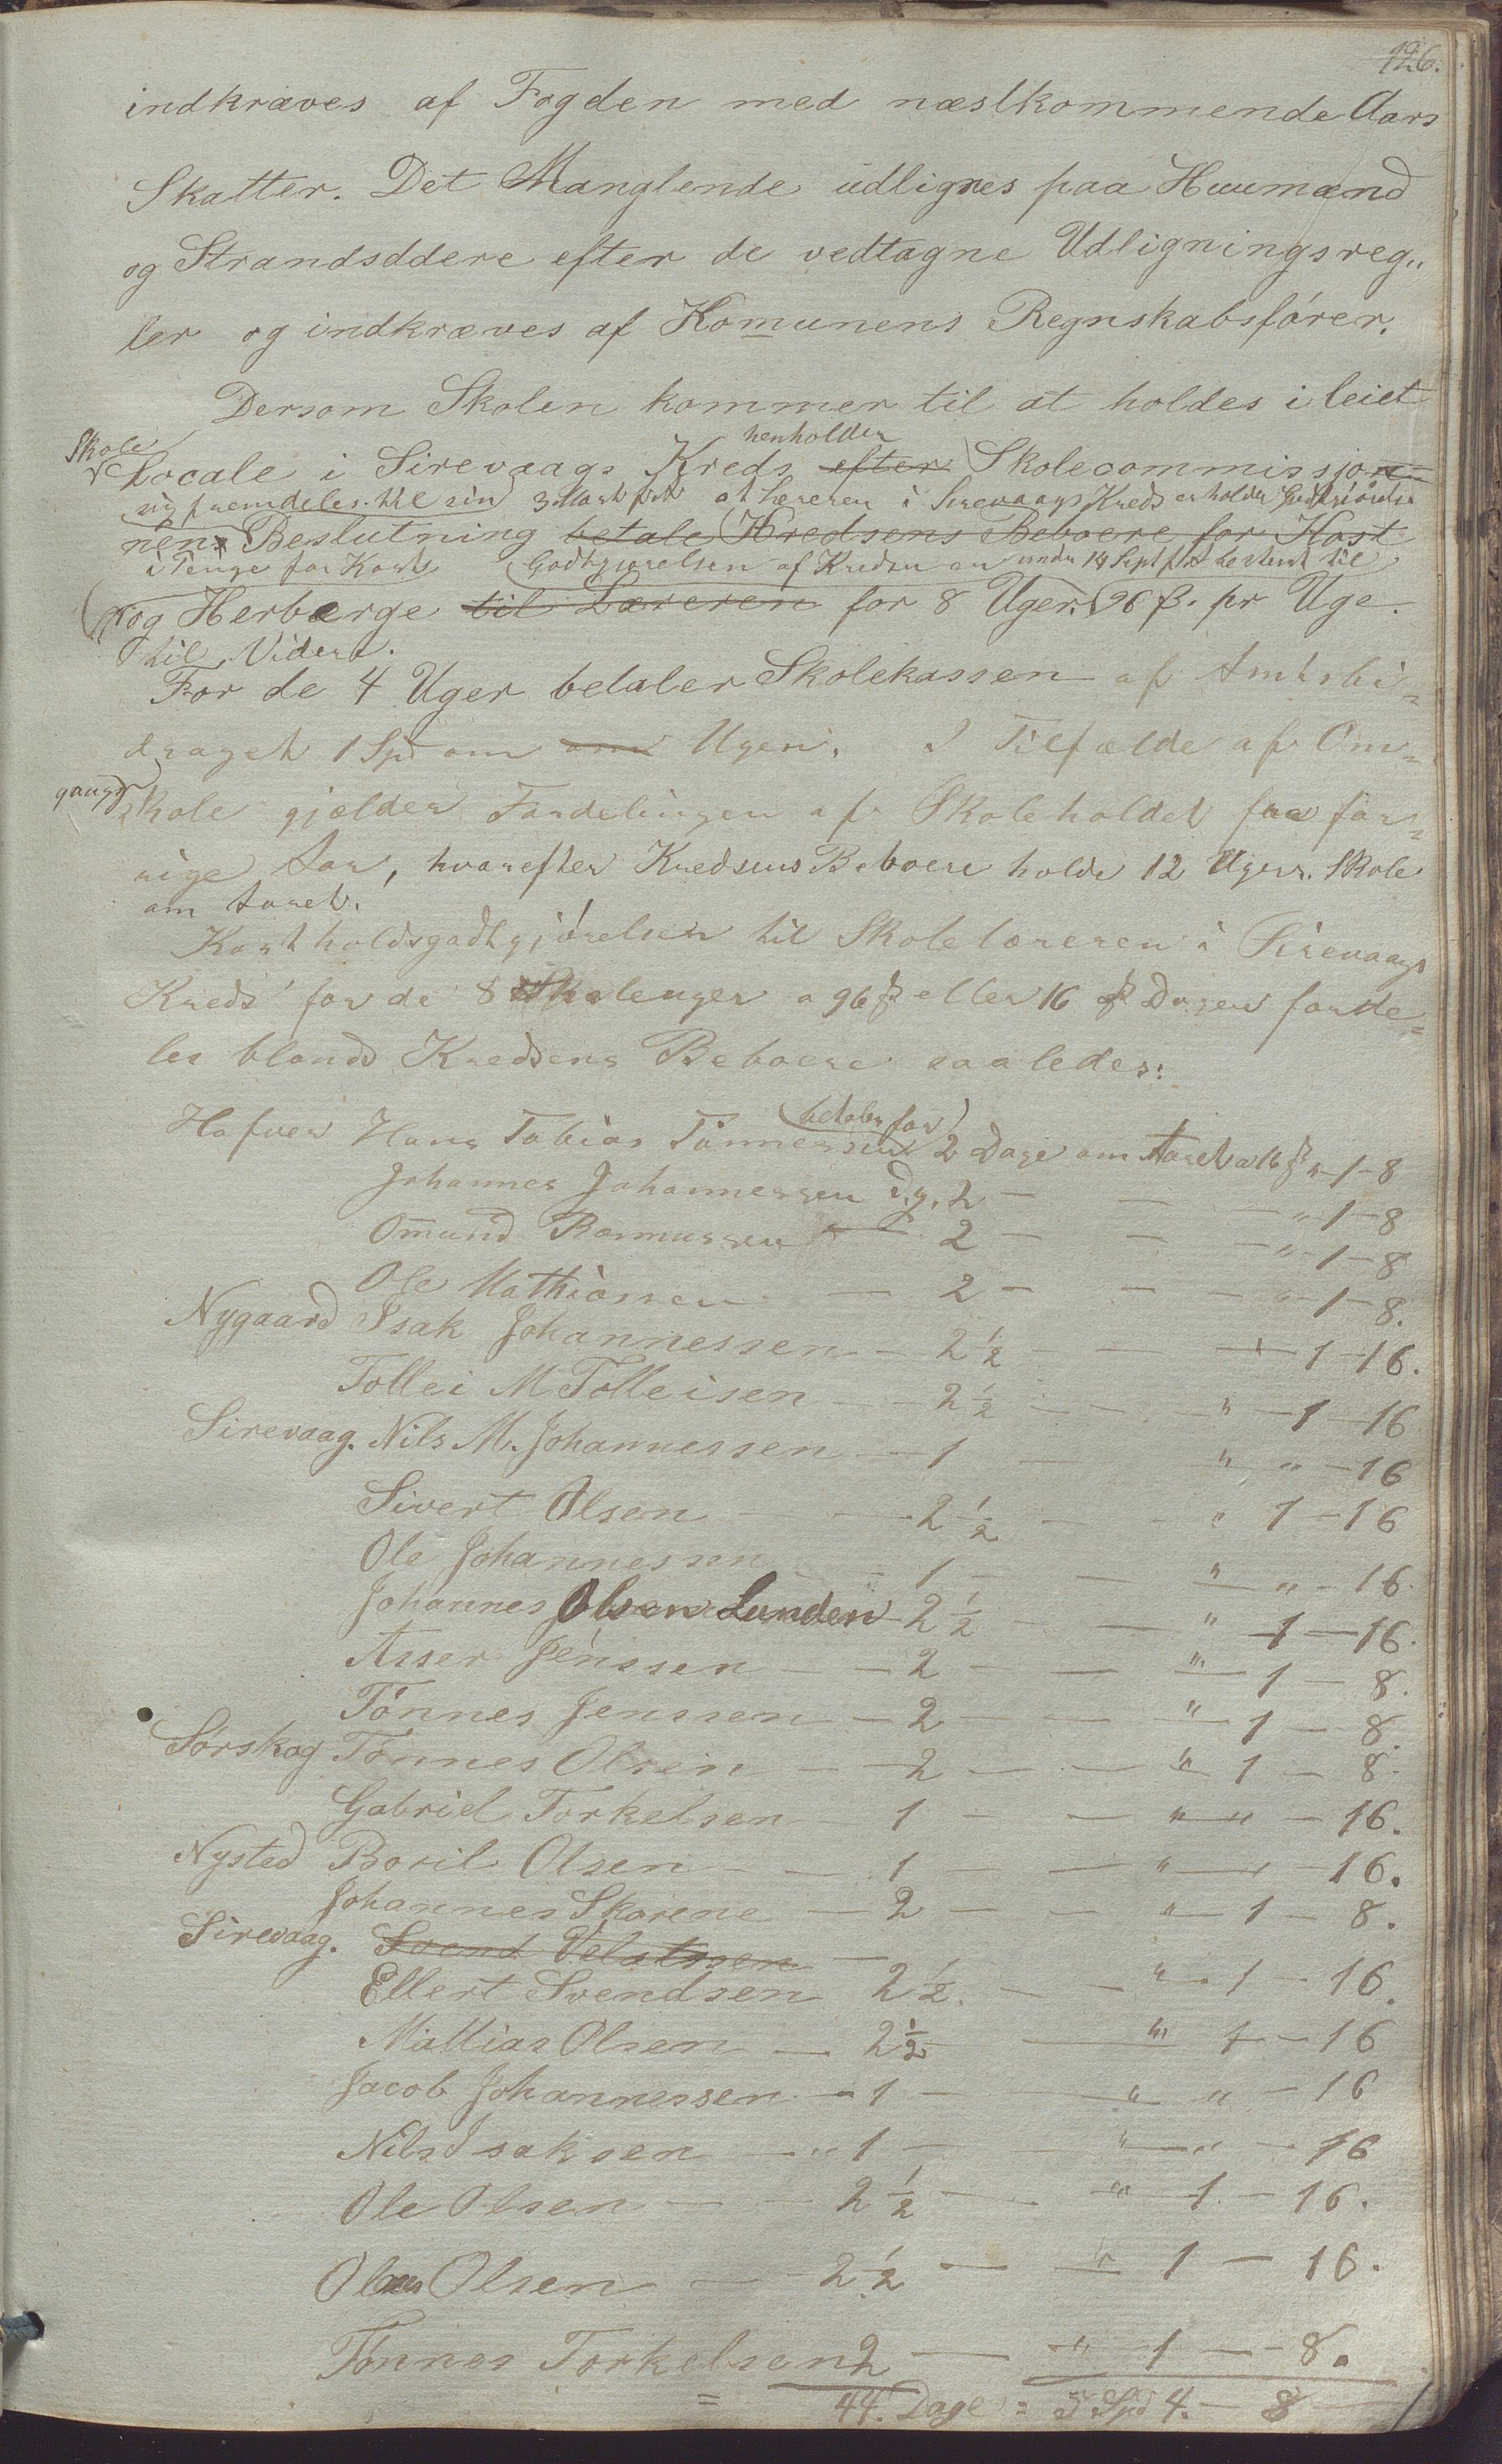 126.
indkræves af Fogden med næstkommende Aars
Skatter. Det Manglende udlignes paa Huusmænd
og Strandsiddere efter de vedtagne Udligningsreg„
ler og indkræves af Komunens Regnskabsfører.
Dersom Skolen kommer til at holdes i leiet
henholder
Skole
Locale i Sirevaags Kreds efter Skolecommissjo-
sig fremdeles til sin 3 Mart at Læreren i Sirevaags Kreds erholder Godtgiörelse
nens Beslutning betale Kredsens Beboere for Kost
i Penge for Kost Godtgjörelsen af Kredsen er under 14 Sept bestemt til
og Herberge til Læreren for 8 Uger. 96 ß. pr Uge.
til Videre.
For de 4 Uger betaler Skolekassen af Amtsbi=
draget 1 Spd om Ugen. I Tilfælde af Om=
gangs
skole gjælder Fordelingen af Skoleholdet fra for=
rige Aar, hvorefter Kredsens Beboere holde 12 Ugers Skole
om Aaret.
Kostholdsgodtgjörelsen til Skolelæreren i Sirevaags
Kreds for de 8 Skoleuger a 96 ß eller 16 ß Dagen forde=
les blandt Kredsens Beboere saaledes:
betaler for
Hafver Hans Tobias Tönnessen 2 Dage om Aaret a 16 ß " - 1 - 8
Johannes Johannessen d.g. 2 — — — " 1 - 8
Omund Rasmussen — 2 — — — " - 1 - 8
Ole Mathiassen — 2 — — — " - 1 - 8.
Nygaard Isak Johannessen — 2 ½ — — — 1 - 16.
Tollei M Tolleisen — - 2 ½ — — " - 1 - 16
Sirevaag. Nils M. Johannessen — 1 — " " - 16
Sivert Olsen — — 2 ½ — - " 1 - 16
Ole Johannessen — 1 — — " " - 16.
Johannes Olsen Lunden - 2 ½ — — " 1 - 16.
Asser Jenssen — — 2 — — " 1 - 8.
Tönnes Jenssen — 2 — — " 1 - 8.
Sörskog Tönnes Olsen — — 2 — — " 1 - 8.
Gabriel Torkelsen — 1 — — " " - 16.
Nysted Boril Olsen — — 1 — — " — - 16.
Johannes Skarene — 2 — — " - 1 - 8.
Sirevaag. Svend Velatssen —
Ellert Svendsen 2 ½. — — " - 1 - 16.
Mattias Olsen — 2 ½ — " 1 - 16
Jacob Johannessen - 1 — — " " - 16
Nils Isaksen — " 1 — — " " - 16
Ole Olsen — — 2 ½ — " 1 - 16.
Olaus Olsen — - 2 ½ — " 1 - 16.
Tönnes Torkelsen 2 — " 1 — 8.
= 44. Dage = 5 Spd 4. - 8